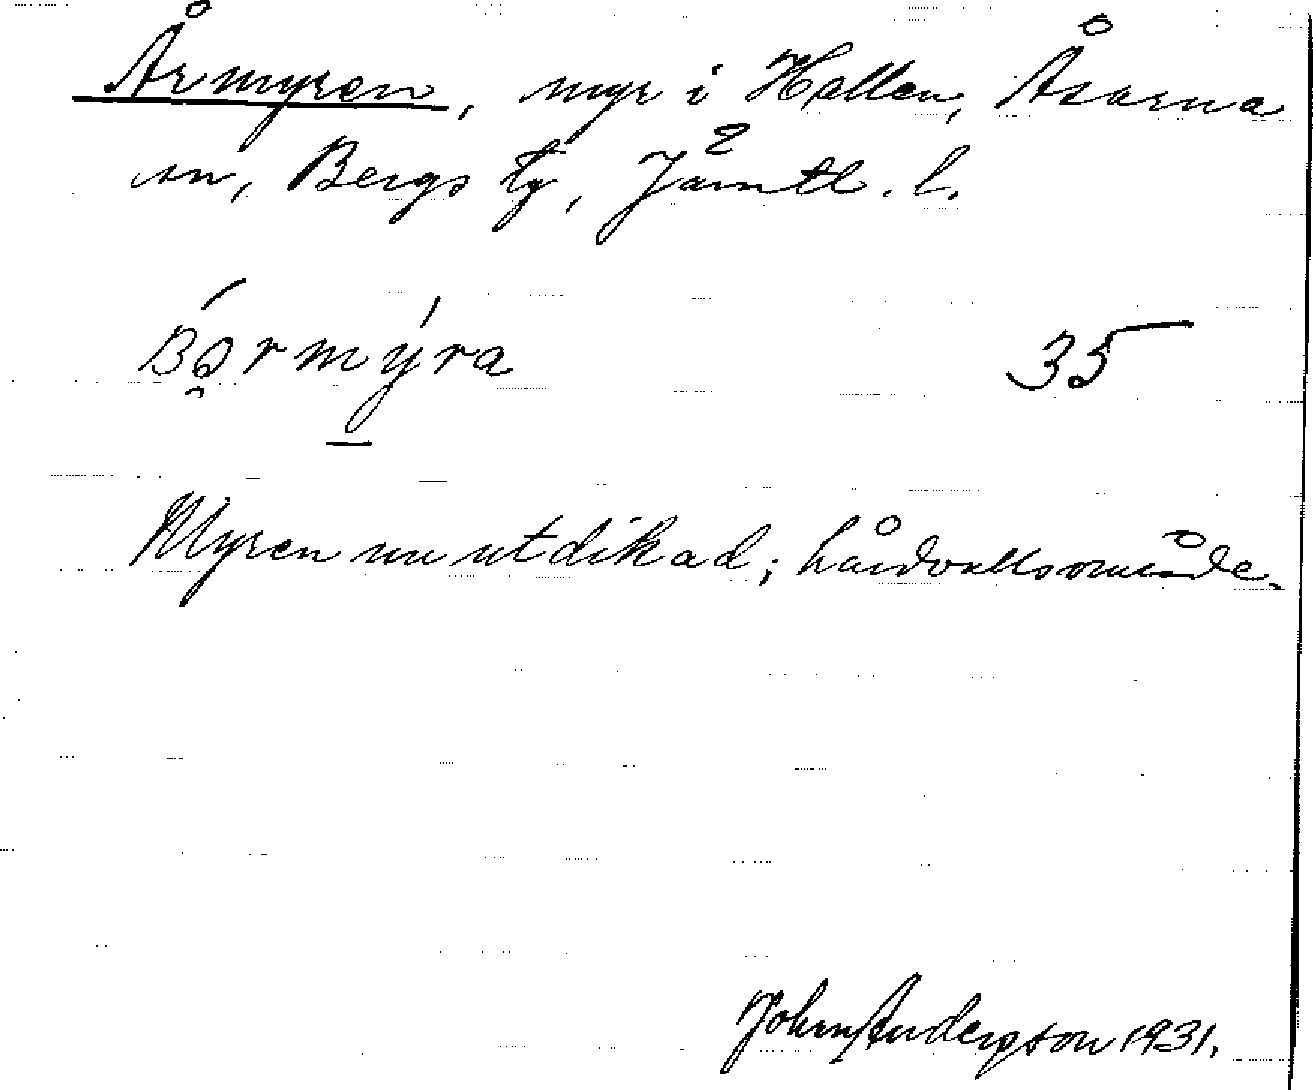 Årmyren, myr i Hallen, Åsarna
sn, Bergs tg, Jämtl. l.
35
Myren nu utdikad; hårdvallsområde.
John Andersson 1931.